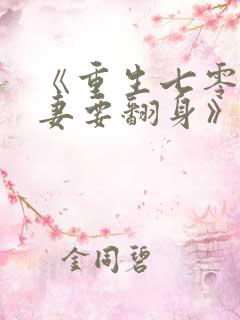 《重生七零
妻要翻身》
金同碧